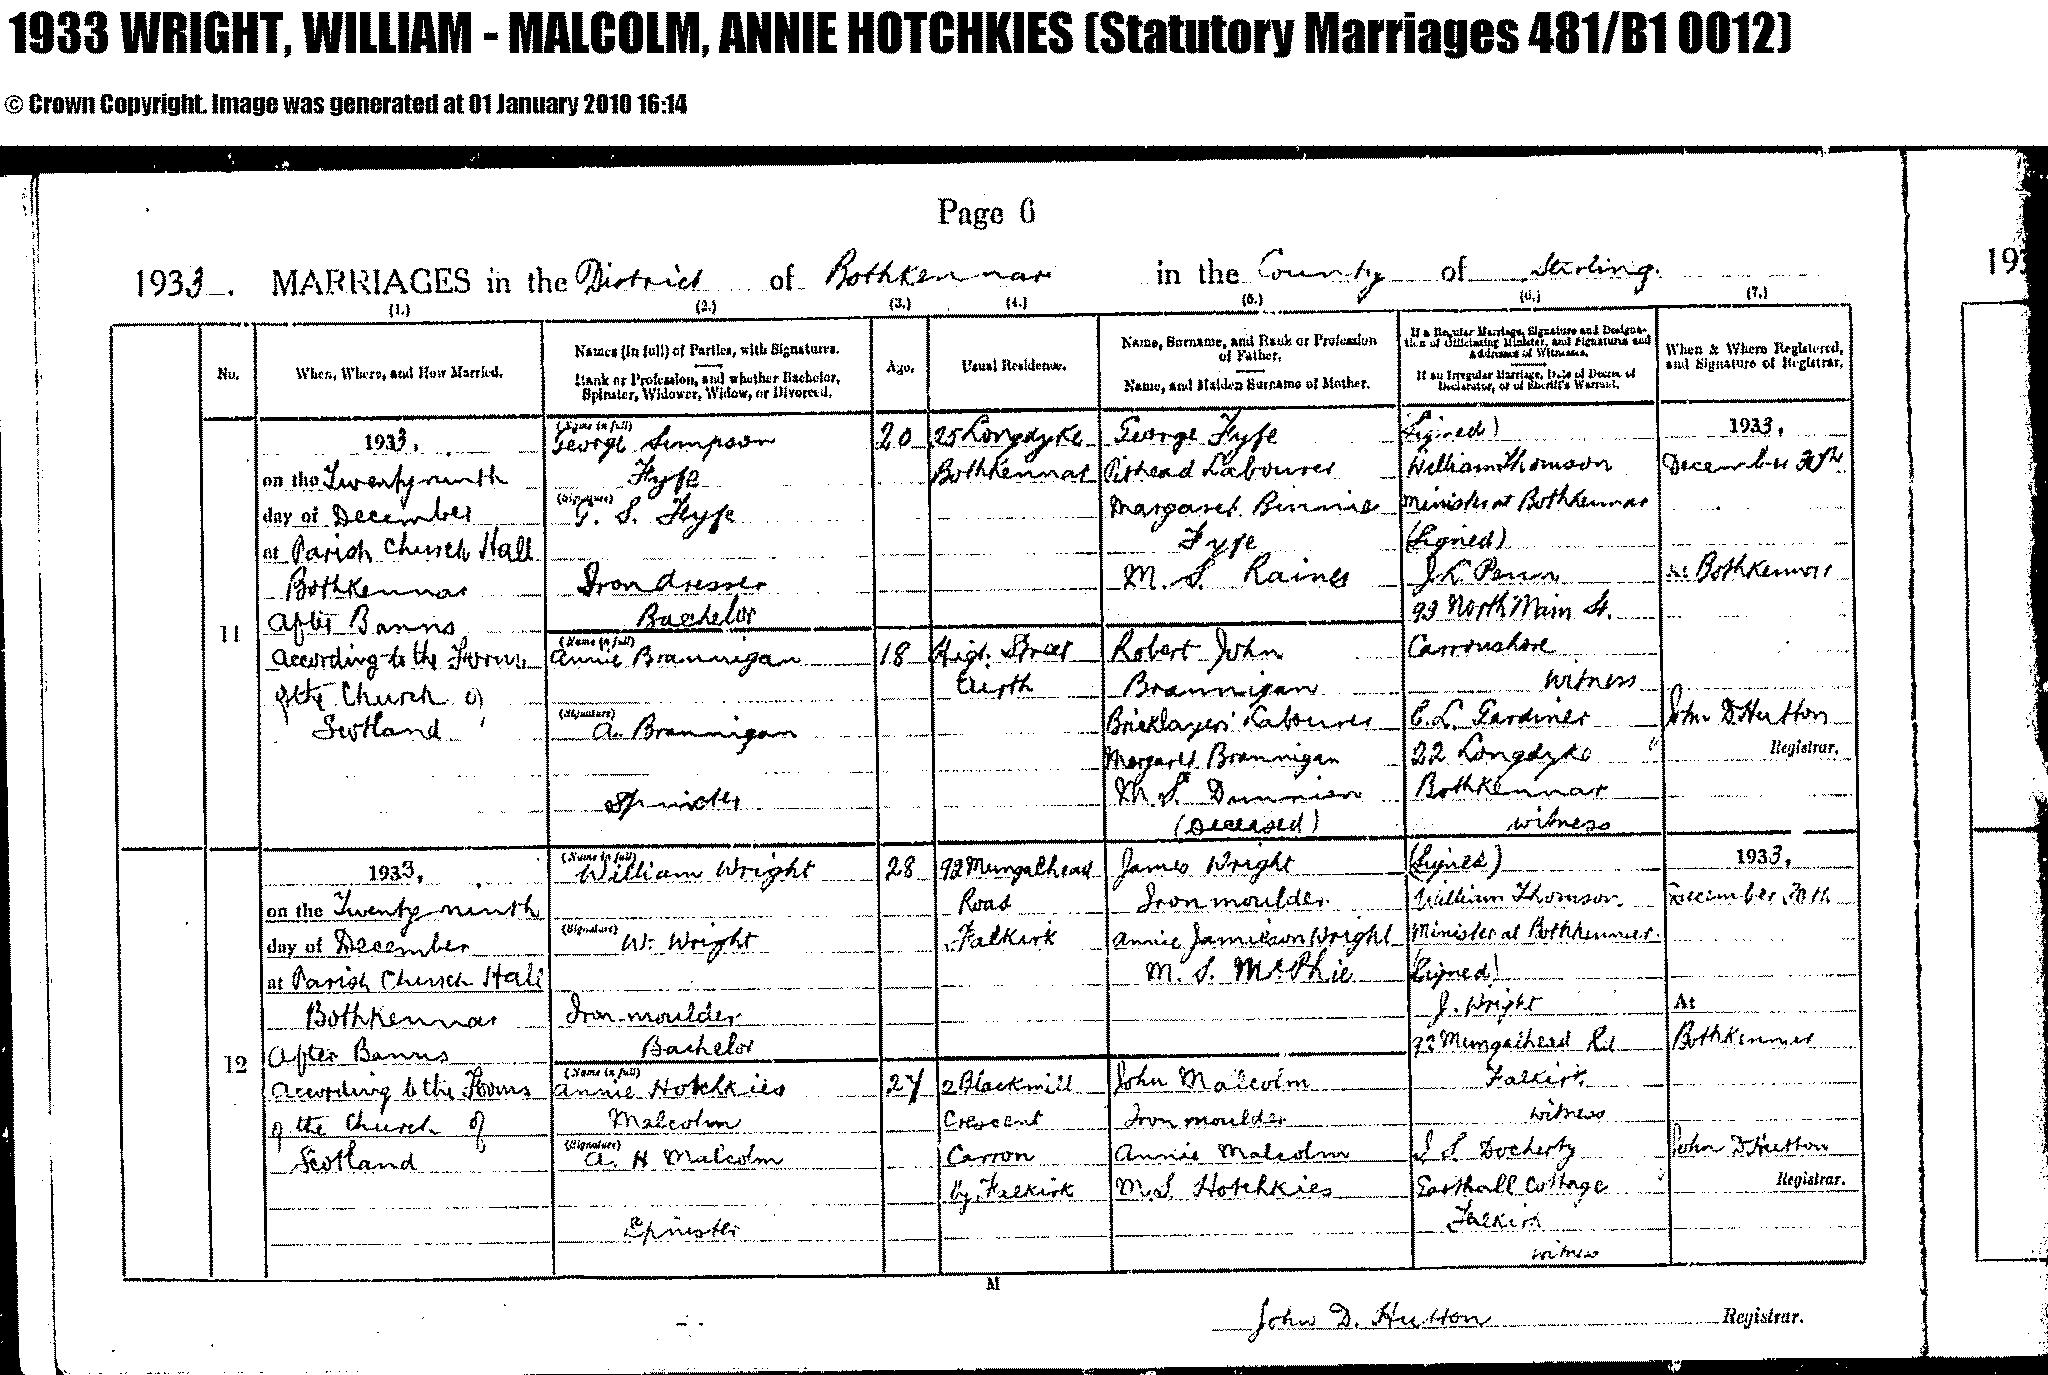 1933 WRIGHT, WILLIAM - MALCOLM, ANNIE HOTCHKIES (Statutory Marriages 481/B1 0012)
© Crown Copyright. Image was generated at 01 January 2010 16:14
Page 6
1933. MARRIAGES in the District of Bothkennar in the County of Stirling.
(1.) (2.) (3.) (4.) (5.) (6.) (7.)
No.
When, Where, and How Married.
Names (in full) of Parties, with Signatures.
Rank or Profession, and whether Bachelor,
Spinster, Widower, Widow, or Divorced.
Age.
Usual Residence.
Name, Surname, and Rank or Profession
of Father.
Name, and Maiden Surname of Mother.
If a Regular Marriage, Signature and Designa-
tion of Officiating Minister, and Signatures and
Addresses of Witnesses.
If an Irregular Marriage, Date of Decree of
Declarator, or of Sheriff's Warrant.
When & Where Registered,
and Signature of Registrar.
11
1933.
on the Twenty ninth
day of December
at Parish Church Hall
Bothkennar
After Banns
According to the Forms
of the Church of
Scotland
(Name in full)
George Simpson
Fyfe
(Signature)
G. S. Fyfe
Iron dresser
Bachelor
20
25 Longdyke
Bothkennar
George Fyfe
Pithead Labourer
Margaret Binnie
Fyfe
M. S. Raines
(Name in full)
Annie Brannigan
(Signature)
A. Brannigan
Spinster
18
High Street
Airth
Robert John
Brannigan
Bricklayers Labourer
Margaret Brannigan
M.S.
(Deceased)
(Signed)
William Thomson
Minister at Bothkennar
(Signed)
93 North Main St.
Carronshore
witness
C. L. Gardiner
22 Longdyke "
Bothkennar
witness
1933.
December 30th
at Bothkennar
John D Hutton
Registrar.
12
1933.
on the Twenty ninth
day of December
at Parish Church Hall
Bothkennar
After Banns
According to the Forms
of the Church of
Scotland
(Name in full)
William Wright
(Signature)
W. Wright
Iron moulder
Bachelor
28
92 Mungalhead
Road
Falkirk
James Wright
Iron moulder
Annie Jamieson Wright
M. S. McPhie
(Name in full)
Annie Hotchkies
Malcolm
(Signature)
A. H Malcolm
Spinster
27
2 Blackmill
Crescent
Carron
by Falkirk
John Malcolm
Iron moulder
Annie Malcolm
M.S Hotchkies
(Signed)
William Thomson.
Minister at Bothkennar.
(Signed)
J. Wright
92 Mungalhead Rd
Falkirk
witness
Docherty
Easthall Cottage
Falkirk
witness
1933.
December 30th
At
Bothkennar
John D Hutton
Registrar.
M
John D. Hutton Registrar.
193